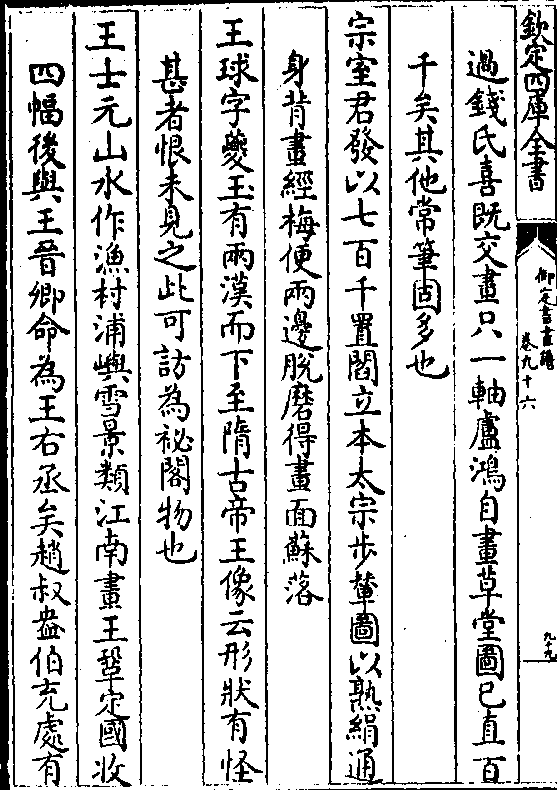 欽定四庫全書
御定書畫譜
卷九十六
九十九
過錢氏喜既交畫只一軸盧鴻自畫草堂圖已直百
千矣其他常筆固多也
宗室君發以七百千置閻立本太宗步輦圖以熟絹通
身背畫經梅便兩邊脫磨得畫面蘇落
王球字夔玉有兩漢而下至隋古帝王像云形狀有怪
甚者恨未見之此可訪為祕閣物也
王士元山水作漁村浦嶼雪景類江南畫王鞏定國收
四幅後與王晉卿命為王右丞矣趙叔盎伯充處有